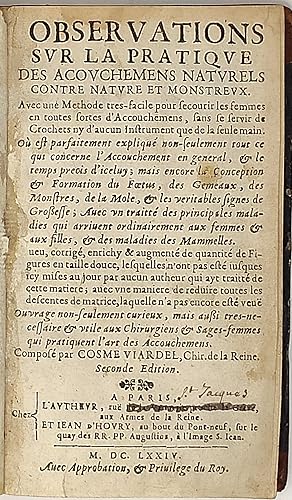 OBSERVATIONS
SVR LA PRATIQVE
DES ACOVCHEMENS NATVRELS
CONTRE NATVRE ET MONSTREVX.
Avec vne Methode tres-facile pour secourir les femmes
en toutes sortes d'Accouchemens, sans se servir de
Crochets ny d'aucun Instrument que de la seule main.
Où est parfaitement expliqué non-seulement tout ce
qui concerne l'Accouchement en general, & le
temps precis d'iceluy; mais encore la Conception
& Formation du Fœtus, des Gemeaux, des
Monstres, de la Mole, & les veritables signes de
Grossesse; Avec vn traitté des principales mala-
dies qui arriuent ordinairement aux femmes &
aux filles, & des maladies des Mammelles.
ueu, corrigé, enrichy & augmenté de quantité de Fi-
gures en taille douce, lesquelles n'ont pas esté iusques
icy mises au jour par aucun autheur qui ayt traitté de
cette matiere; auec vne maniere de réduire toutes les
descentes de matrice, laquelle n'a pas encore esté veuë
Ouvrage non-seulement curieux, mais aussi tres-ne-
cessaire & vtile aux Chirurgiens & Sages-femmes
qui pratiquent l'art des Accouchemens.
Composé par COSME VIARDEL, Chir. de la Reine.
Seconde Edition.
A PARIS,
St Jacques
Chez
L'AVTHEVR, ruë
aux Armes de la Reine.
ET IEAN D'HOVRY, au bout du Pont-neuf, sur le
quay des RR. PP. Augustins, à l'Image S. Iean.
M. DC. LXXIV.
Auec Approbation, & Privilege du Roy.